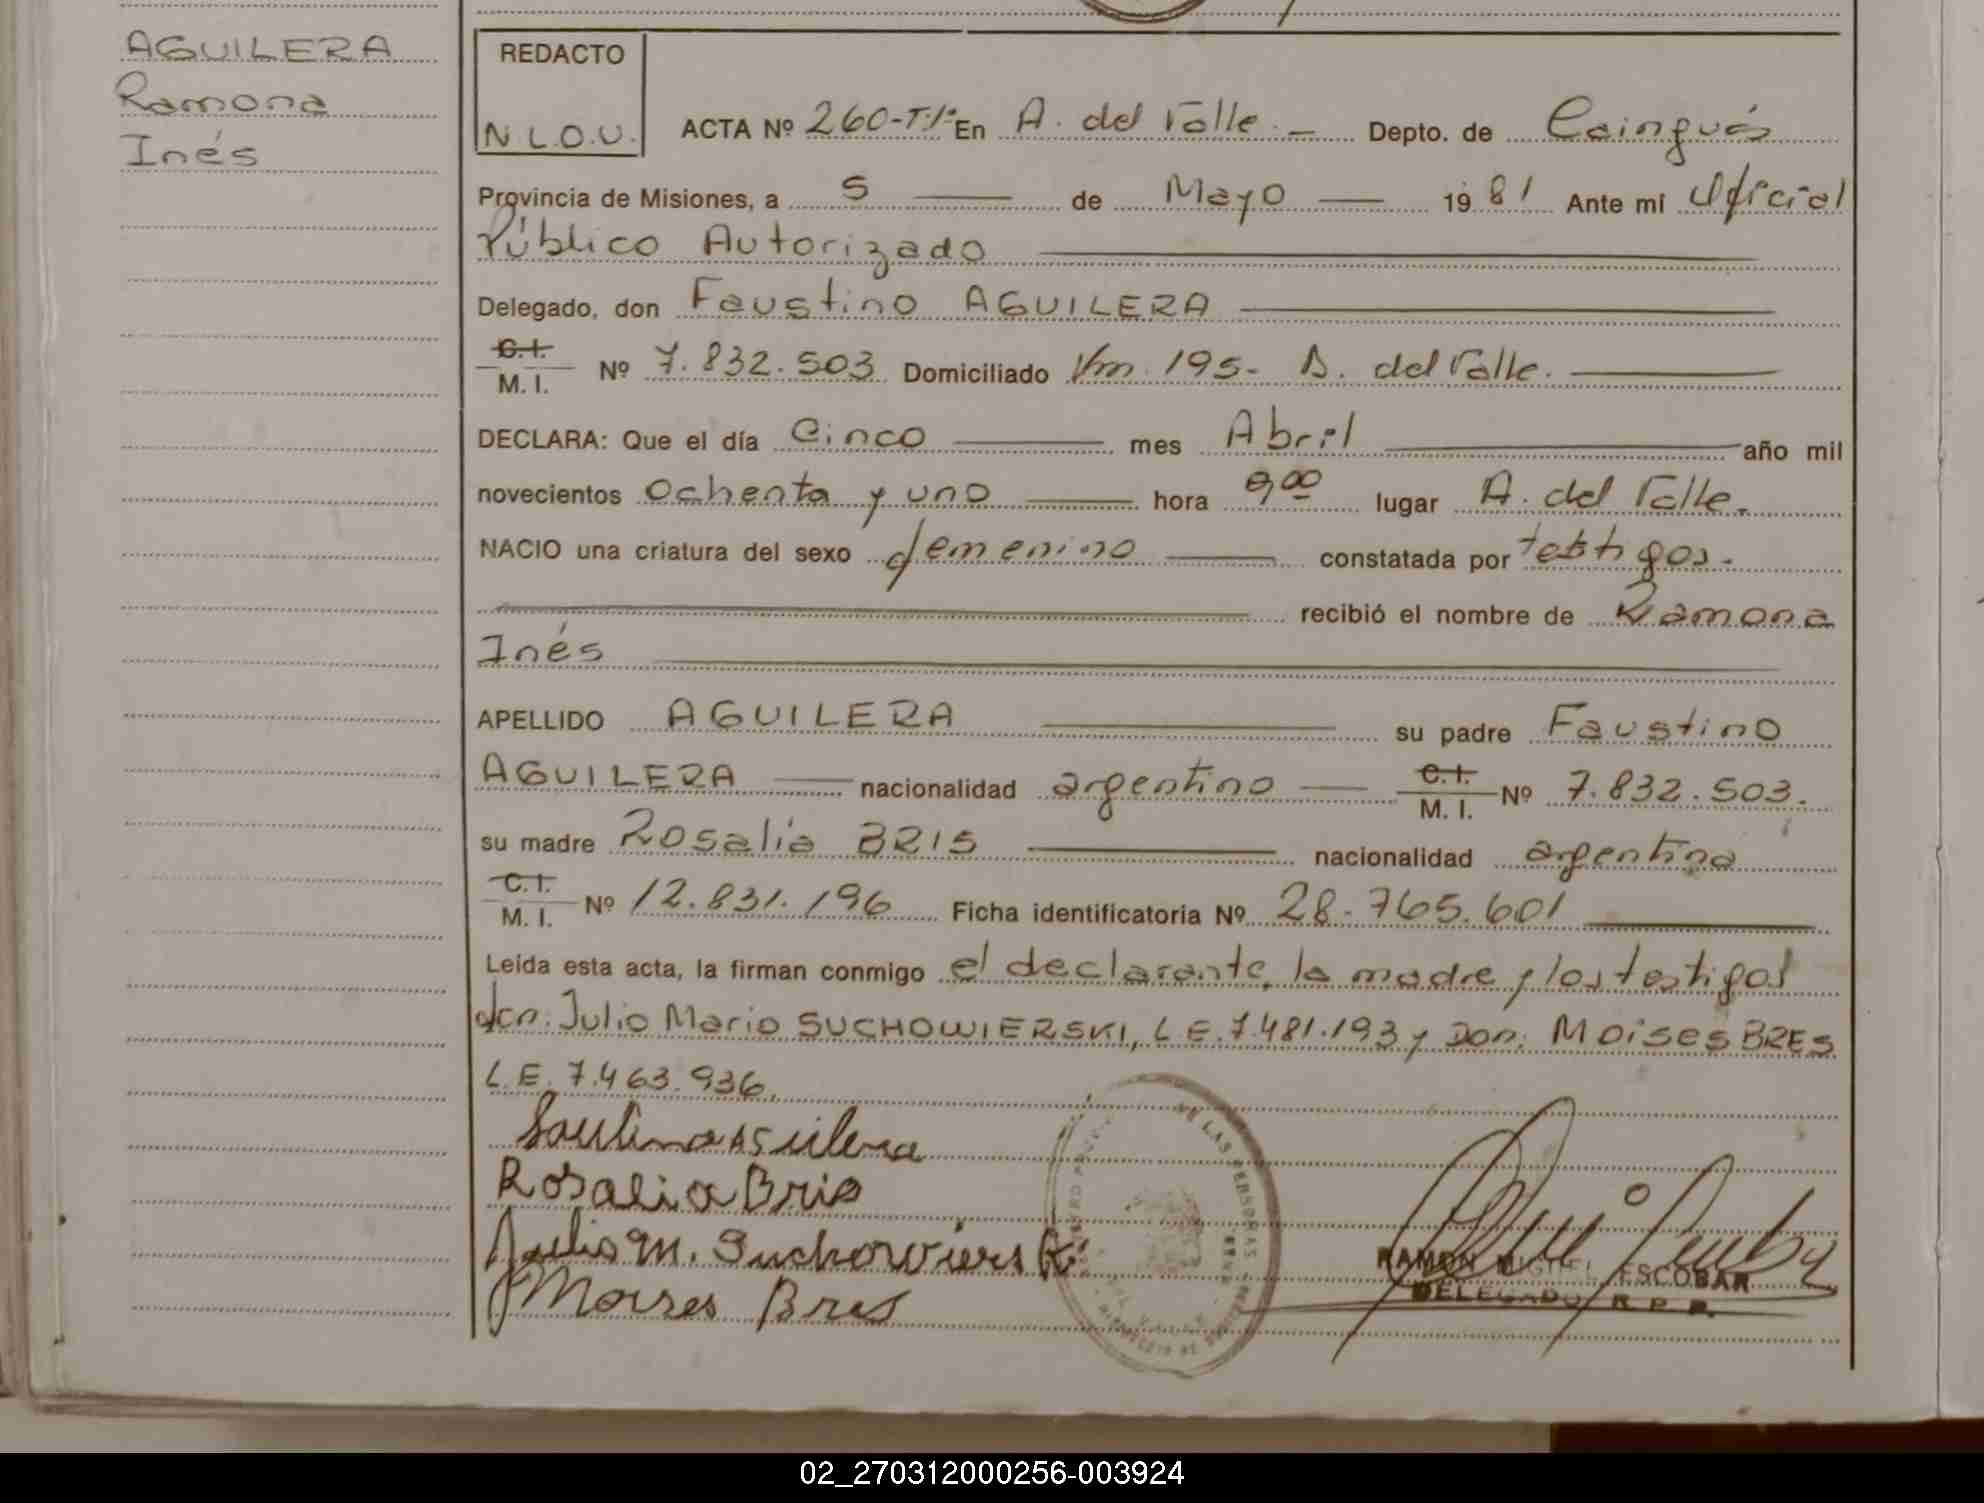 AGUILERA
Ramona
Inés
REDACTO
N L.O.U.
ACTA Nº 260-T:1º En A. del Valle. Depto. de Cainguás
Provincia de Misiones, a 5 de Mayo 1981 Ante mi Oficial
Público Autorizado
Delegado, don Faustino AGUILERA
C.I.
M. I. Nº 7.832.503 Domiciliado Km. 195- A. del Valle.
DECLARA: Que el día Cinco mes Abril año mil
novecientos ochenta y uno hora 9,00 lugar A. del Valle.
NACIO una criatura del sexo femenino constatada por testigos.
recibió el nombre de Ramona
Inés
APELLIDO AGUILERA su padre Faustino
AGUILERA nacionalidad argentino C.I. M. I. Nº 7.832.503.
su madre Rosalia BRIS nacionalidad argentina
C.I.
M. I. Nº 12.831.196 Ficha identificatoria Nº 28.765.601
Leída esta acta, la firman conmigo el declarante, la madre y los testigos
don: Julio Mario SUCHOWIERSKI, L E. 7.481.193 y Don: Moises BRES
L.E. 7.463.936.
Faustino Aguilera
Rosalia Bris
Julio M. Suchowierski
Moises Bres
DE LAS PERSONAS
RAMON MIGUEL ESCOBAR
DELEGADO R. P. P.
02_270312000256-003924